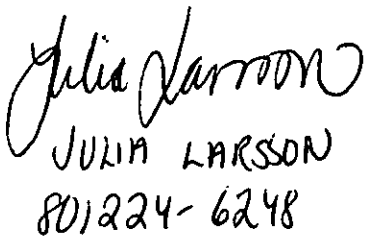 Julia Larsson
JULIA LARSSON
801224-6248